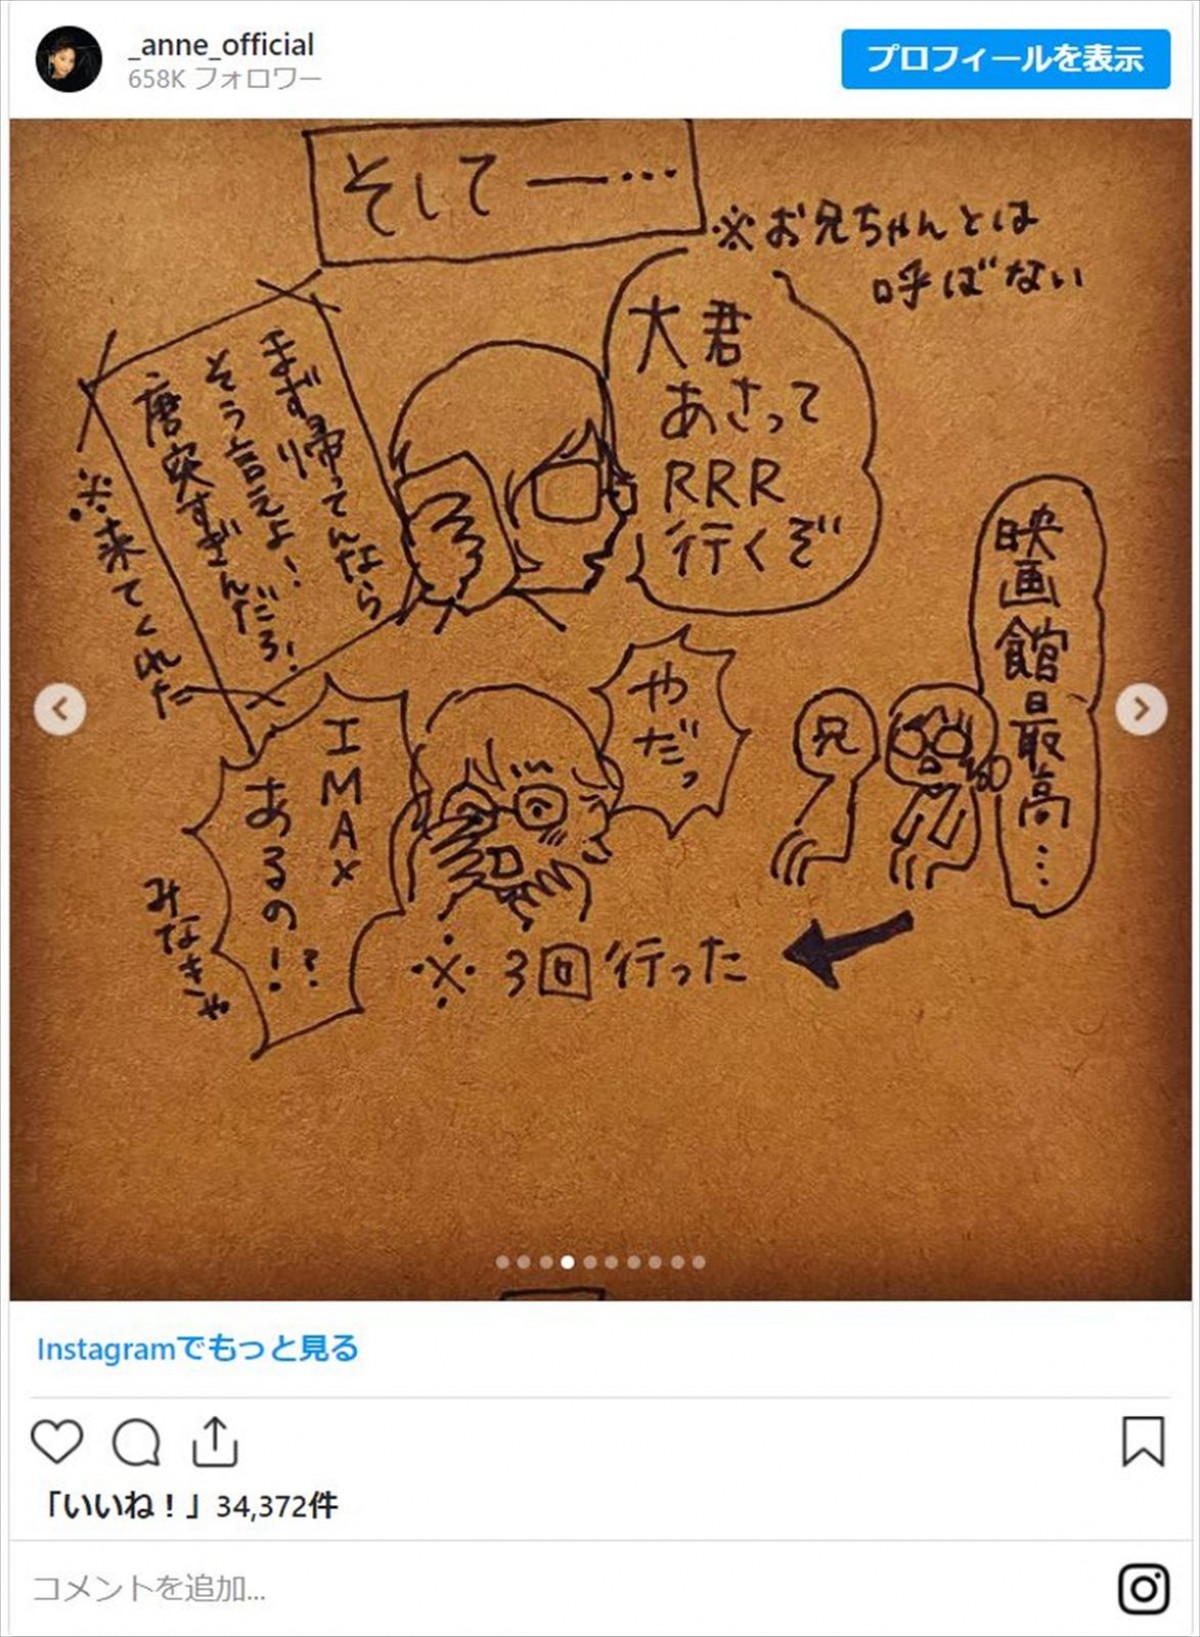 _anne_official
658K フォロワー
プロフィールを表示
そして―…
※お兄ちゃんとは
呼ばない
大君
あさって
RRR
行くぞ
まず帰ってんなら
そう言えよ!
唐突すぎんだろ!
※来てくれた
映画館最高…
やだっ
兄
IMAX
あるの!?
みなきゃ
※3回行った
Instagramでもっと見る
「いいね！」34,372件
コメントを追加...